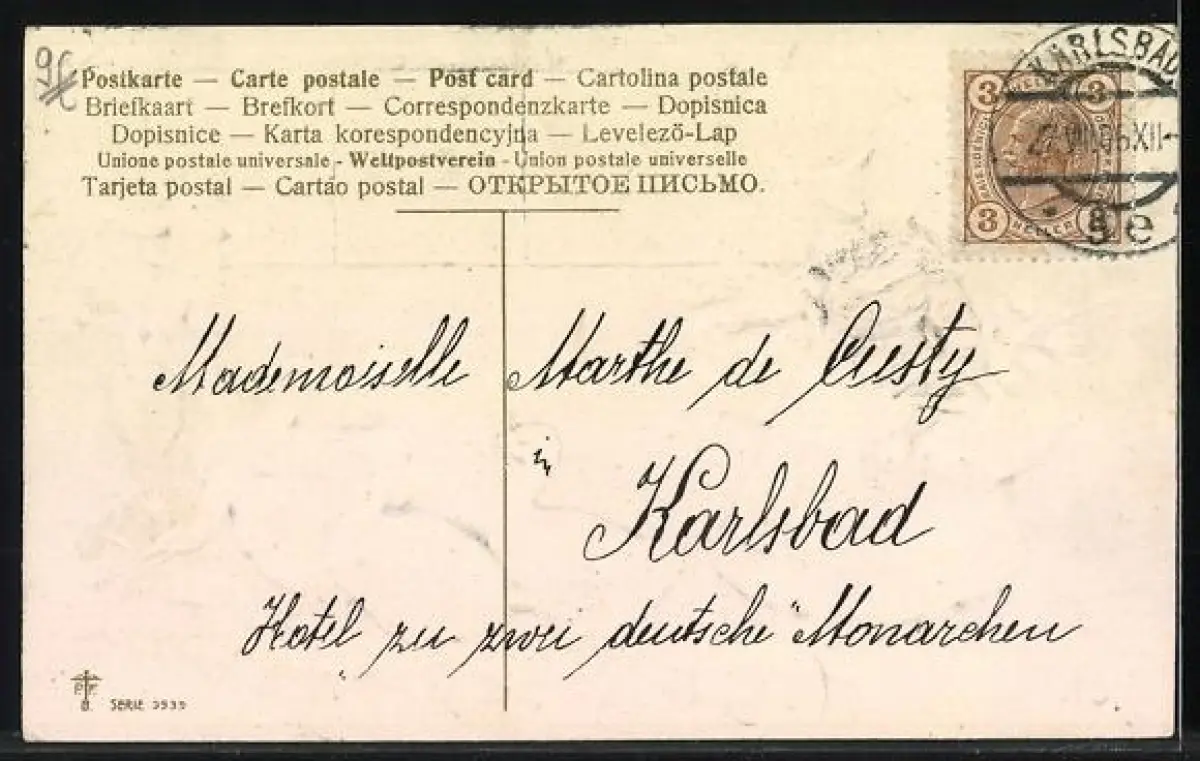 Postkarte — Carte postale — Post card — Cartolina postale
Briefkaart — Brefkort — Correspondenzkarte — Dopisnica
Dopisnice — Karta korespondencyjna — Levelező-Lap
Unione postale universale - Weltpostverein - Union postale universelle
Tarjeta postal — Cartão postal — ОТКРЫТОЕ ПИСЬМО.
KARLSBAD
3 3
3
HELLER
Mademoiselle Marthe de
in
Karlsbad
Hotel zu zwei deutsche Monarchen
SERIE 3939